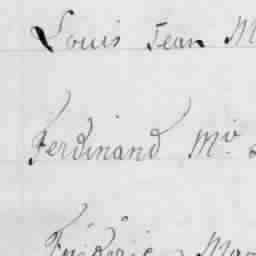 Louis Jean M
Ferdinand Mv
Fréderic Ma